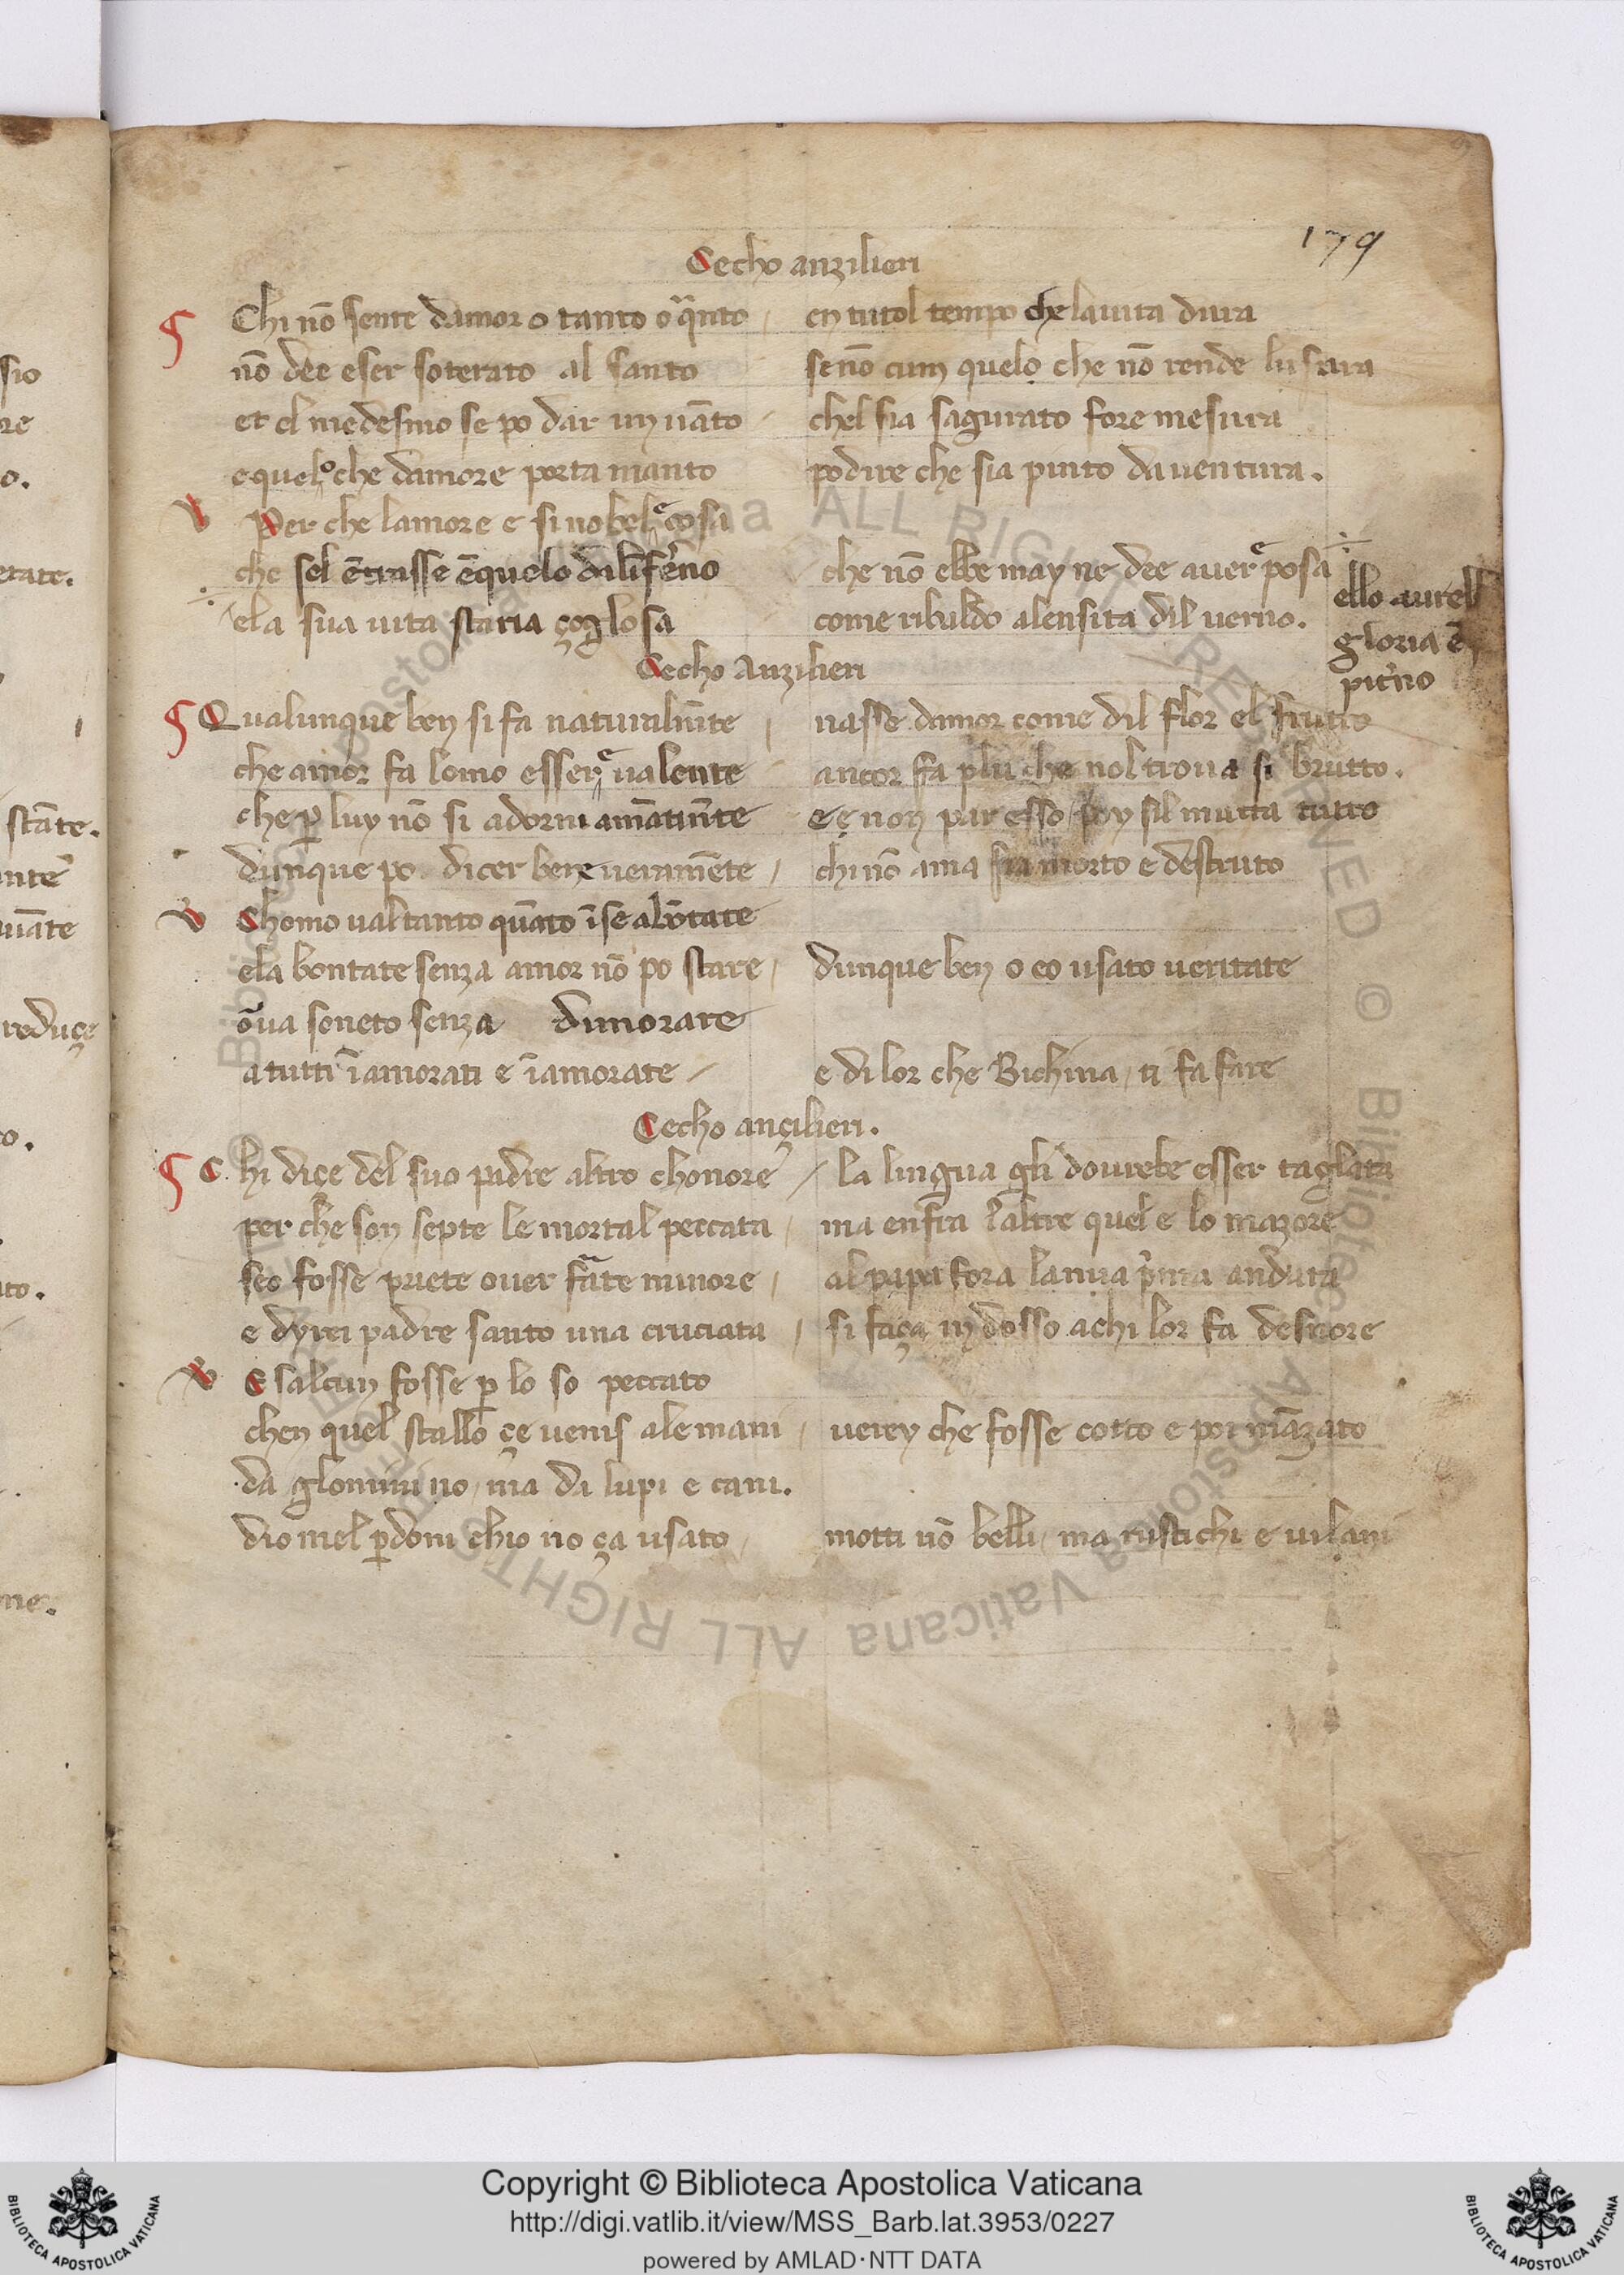 179
Cecho anzilieri
Chi nō sente damor o tanto o q̈nto / en tutol tempo che lauita dura
nō dee eser soterato al santo se nō cum quelo che nō rende lusura
et el medesmo se po dar un uāto chel sia sagurato fore mesura
e quelo che damore porta manto po dire che sia pinto da uentura.
v Per che lamore e si nobele cosa
che sel ētrasse ēquelo dilifērno che nō ebbe may ne dee auere posa
ela sua uita staria çoglosa come ribaldo alensita dil uerno.
ello aureb
gloria ē
piťno
Cecho Anzilieri
Qualunque ben si fa naturalmēte / nasse damor come dil flor el frutto
che amor fa lomo essere ualente ancor fa plu che nol troua si brutto.
che ꝑ luy nō si adorni amātinēte e çe non par esso / poy sil mutta tutto
dunque po dicer bene ueramēte / chi nō ama sia morto e destruto
v Chomo ual tanto quāto ī se a bōtate
ela bontate senza amor nō po stare / dunque ben o eo usato ueritate
or̄ ua soneto senza dimorare
a tutti īamorati e īamorate / e di lor che Bichina ti fa fare
Cecho ançilieri.
Chi diçe del suo padre altro chonore / la lingua gli dourebe esser taglata
per che son septe le mortal peccata / ma enfra laltre quel e lo mazore
seo fosse priete ouer frāte minore / al papa fora la mia pīma andata
e dyrei padre santo una cruciata / si faça in dosso a chi lor fa desnore
v E salcun fosse ꝑ lo so peccato
chen quel stallo çe uenis ale mani / uerey che fosse cotto e poi māzato
da glomini no / ma da lupi e cani.
dio mel ꝑdoni chio no ça usato / motti nō belli / ma rustichi e uilani
Copyright © Biblioteca Apostolica Vaticana
http://digi.vatlib.it/view/MSS_Barb.lat.3953/0227
powered by AMLAD·NTT DATA
BIBLIOTECA APOSTOLICA VATICANA
BIBLIOTECA APOSTOLICA VATICANA